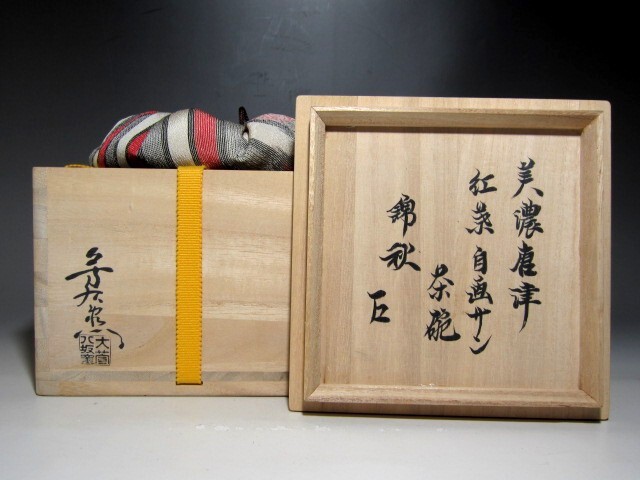 美濃唐津
紅葉自画サン
茶碗
錦秋
大萱
八坂窯